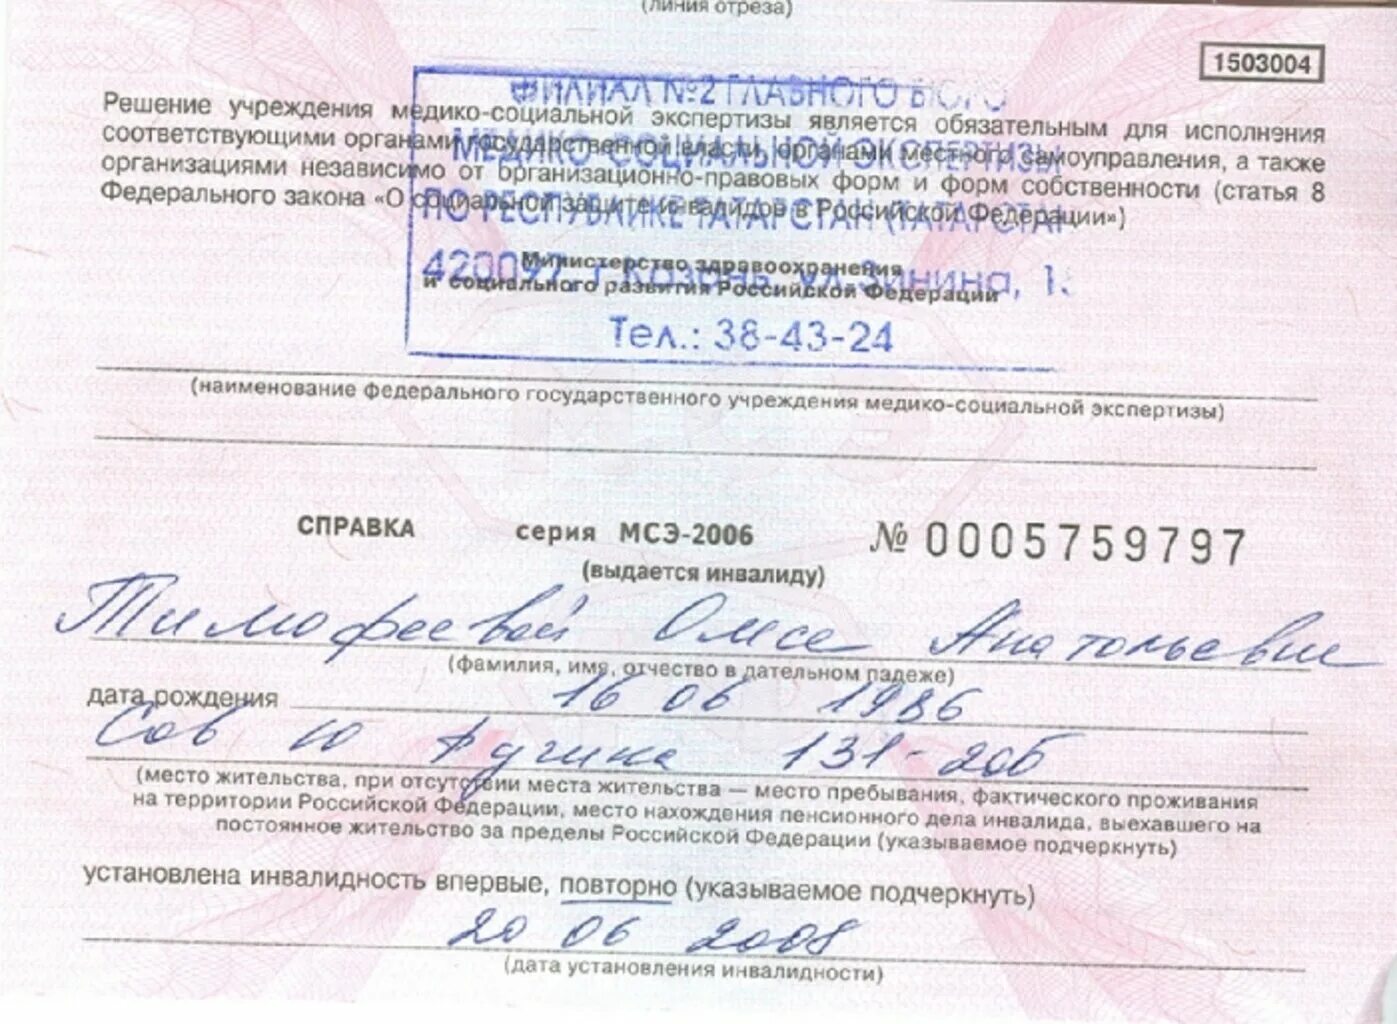 (линия отреза)
1503004
ФИЛИАЛ №2 ГЛАВНОГО БЮРО
МЕДИКО-СОЦИАЛЬНОЙ ЭКСПЕРТИЗЫ
ПО РЕСПУБЛИКЕ ТАТАРСТАН (ТАТАРСТАН
420097 г. Казань, ул. Зинина, 1
Тел.: 38-43-24
Решение учреждения медико-социальной экспертизы является обязательным для исполнения
соответствующими органами государственной власти, органами местного самоуправления, а также
организациями независимо от организационно-правовых форм и форм собственности (статья 8
Федерального закона «О социальной защите инвалидов в Российской Федерации»)
Министерство здравоохранения
и социального развития Российской Федерации
(наименование федерального государственного учреждения медико-социальной экспертизы)
СПРАВКА серия МСЭ-2006 № 0005759797
(выдается инвалиду)
Тимофеевой Анатольевне
(фамилия, имя, отчество в дательном падеже)
дата рождения 16 06 1986
Сов 131-206
(место жительства, при отсутствии места жительства — место пребывания, фактического проживания
на территории Российской Федерации, место нахождения пенсионного дела инвалида, выехавшего на
постоянное жительство за пределы Российской Федерации (указываемое подчеркнуть)
установлена инвалидность впервые, повторно (указываемое подчеркнуть)
20 06 2008
(дата установления инвалидности)